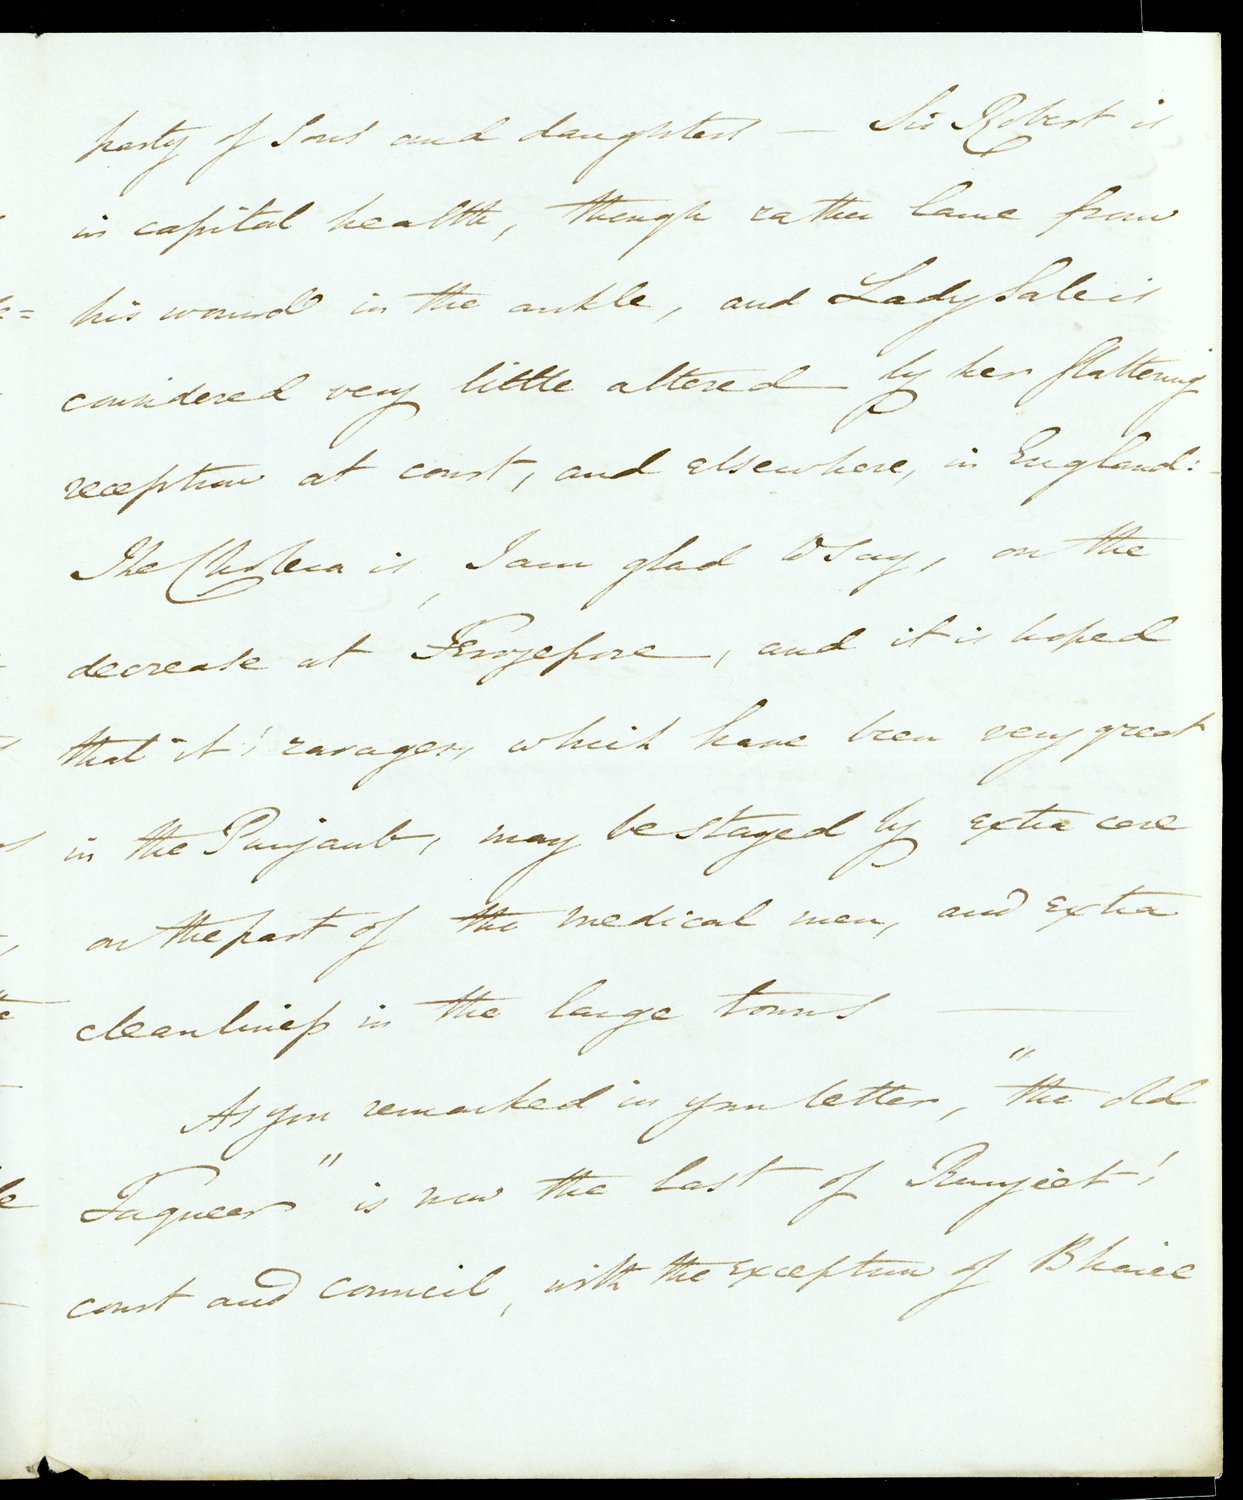 party of Sons and daughters — Sir Robert is
in capital health, though rather lame from
his wound in the ankle, and Lady Sale is
considered very little altered by her flattering
reception at court, and elsewhere, in England:
The Cholera is, I am glad to say, on the
decrease at Ferozepore, and it is hoped
that it's ravages, which have been very great
in the Punjaub, may be stayed by extra care
on the part of the medical men, and extra
cleanliness in the large towns —
As you remarked in your letter, "the old
Faqueer" is now the last of Runjeet's
court and council, with the exception of Bhaiee